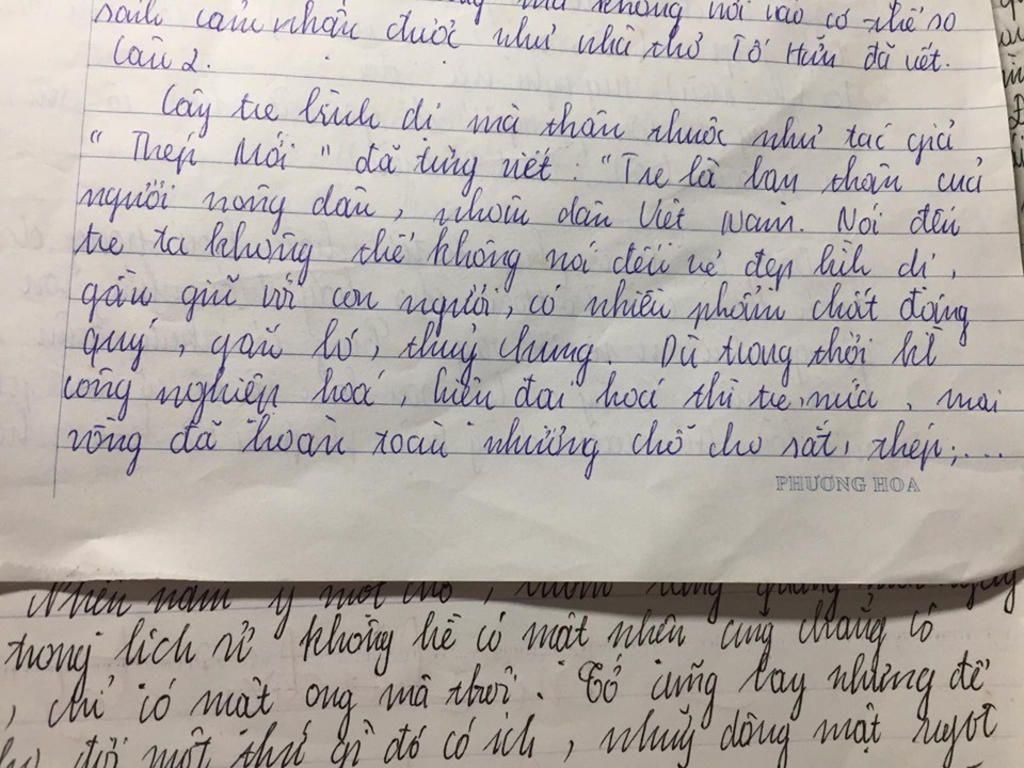 không nói vào có thể so
sánh cảm nhận được như nhà thơ Tố Hữu đã viết.
Câu 2.
Cây tre bình dị mà thân thuộc như tác giả
" Thép Mới " đã từng viết : " Tre là bạn thân của
người nông dân, nhân dân Việt Nam. Nói đến
tre ta không thể không nói đến vẻ đẹp bình dị,
gần gũi với con người, có nhiều phẩm chất đáng
quý, gắn bó, thuỷ chung. Dù trong thời kì
công nghiệp hoá, hiện đại hoá thì tre, nứa, mai
vồng đã hoàn toàn nhường chỗ cho sắt, thép;...
PHƯƠNG HOA
trong lịch sử không hề có mật nhện cũng chẳng có
, chỉ có mật ong mà thôi. Tớ cũng hay nhưng để
đời một thứ gì đó có ích, những dòng mật ngọt